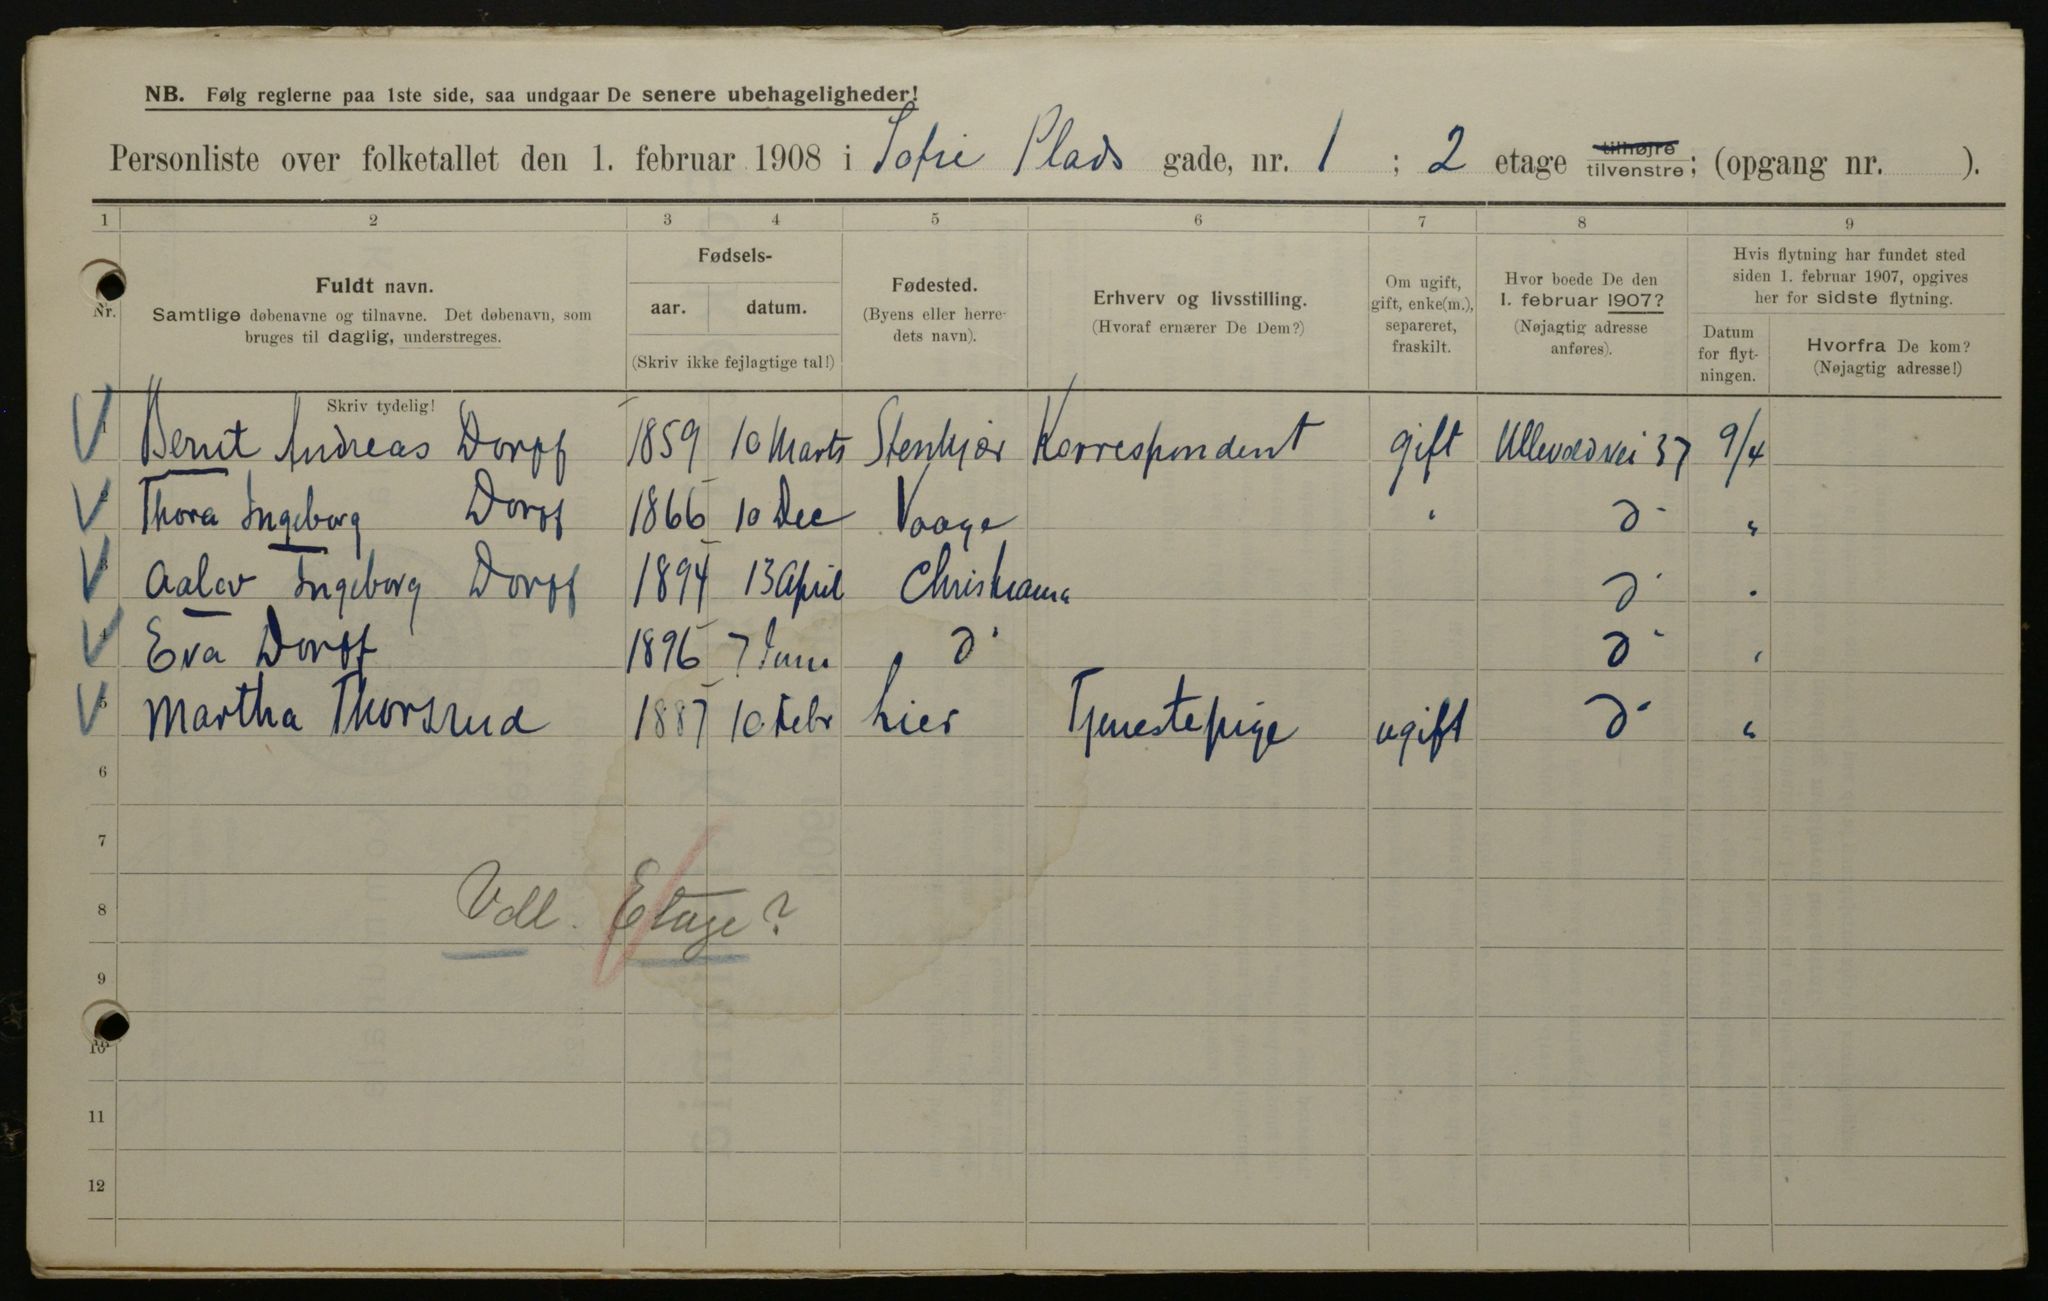 NB. Følg reglerne paa 1ste side, saa undgaar De senere ubehageligheder!
Personliste over folketallet den 1. februar 1908 i Sofie Plads gade, nr. 1 ; 2 etage tilhøjre tilvenstre; (opgang nr. ).
1 2 3 4 5 6 7 8 9
Nr.
Fuldt navn.
Samtlige døbenavne og tilnavne. Det døbenavn, som
bruges til daglig, understreges.
Skriv tydelig!
Fødsels-
aar. datum.
(Skriv ikke fejlagtige tal!)
Fødested.
(Byens eller herre-
dets navn).
Erhverv og livsstilling.
(Hvoraf ernærer De Dem?)
Om ugift,
gift, enke(m.),
separeret,
fraskilt.
Hvor boede De den
1. februar 1907?
(Nøjagtig adresse
anføres).
Hvis flytning har fundet sted
siden 1. februar 1907, opgives
her for sidste flytning.
Datum
for flyt-
ningen.
Hvorfra De kom?
(Nøjagtig adresse!)
Bernt Andreas Dorff 1859 10 Marts Stenkjær Korrespondent gift Ullevoldsvei 37 9/4
Thora Ingeborg Dorff 1866 10 Dec Vaage " do "
Aalov Ingeborg Dorff 1894 13 April Christiania do "
Eva Dorff 1896 7 Juni do do "
5 Martha Thorsrud 1887 10 Febr Lier Tjenestepige ugift do "
6
7
8
Etage?
9
10
11
12